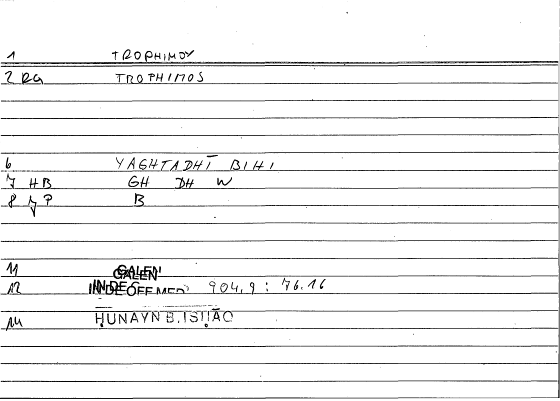 1 TROPHIMOY
2 RG TROPHIMOS
6 YAGHTADHĪ BIHI
7 HB GH DH W
8 P B
11 GALEN
12 IN DE OFF MED 904,9 : 76.16
14 ḤUNAYN B. ISḤĀQ